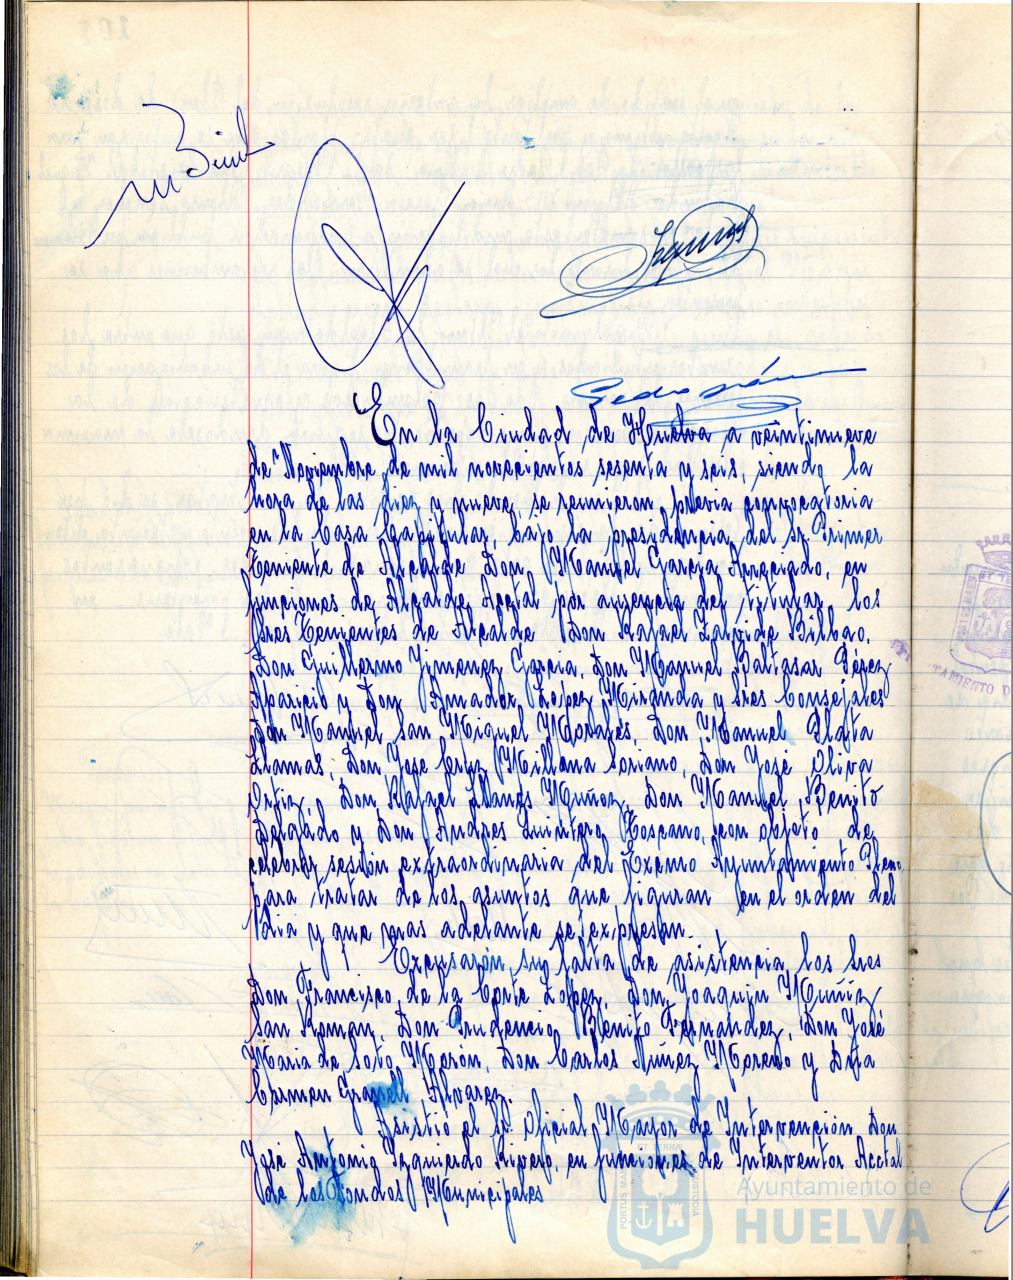 En la Ciudad de Huelva a veintinueve
de Noviembre de mil novecientos sesenta y seis, siendo la
hora de las diez y nueve, se reunieron, previa convocatoria
en la Casa Capitular, bajo la presidencia del Sr. Primer
Teniente de Alcalde Don Manuel García Anreciado, en
funciones de Alcalde Acctal por ausencia del titular, los
Sres Tenientes de Alcalde Don Rafael Zalvide Bilbao,
Don Guillermo Jimenez Garcia, Don Manuel Baltasar Pérez
Aparicio y Don Amador Lopez Miranda y Sres Consejales
Don Manuel San Miguel Morales, Don Manuel Plata
Llamas, Don Jose Cruz Millana Soriano, Don Jose Oliva
Ortiz, Don Rafael Llanes Muñoz, Don Manuel Benito
Delgado y Don Andres Quintero Toscano, con objeto de
celebrar sesión extraordinaria del Excmo Ayuntamiento Pleno,
para tratar de los asuntos que figuran en el orden del
dia y que mas adelante se expresan.
Excusarón su falta de asistencia los Sres
Don Francisco de la Corte Lopez, Don Joaquin Muñiz
San Roman, Don Prudencio Benito Fernandez, Don José
Maria de Soto Morón, Don Carlos Nuñez Moreno y Dña
Carmen Granell Alvarez.
Asistió el Sr. Oficial Mayor de Intervención Don
José Antonio Izquierdo Rivero, en funciones de Interventor Acctal
de los Fondos Municipales
Ayuntamiento de
HUELVA